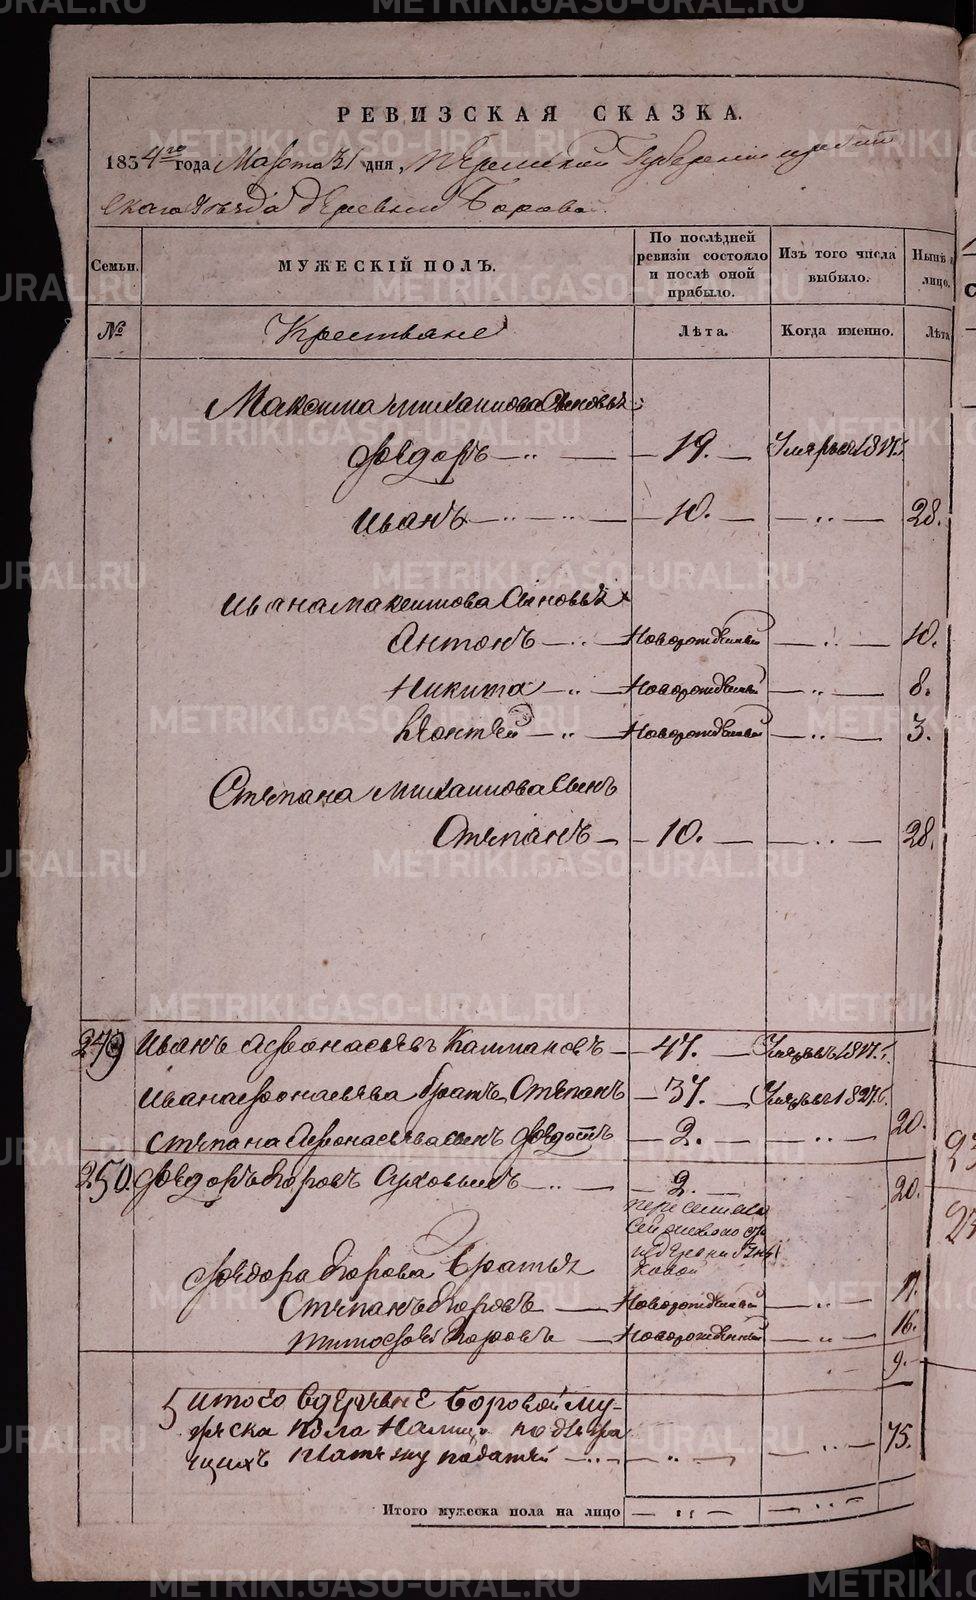 РЕВИЗСКАЯ СКАЗКА.
1834го года Марта 31 дня, Пермской Губернии Ирбит
скаго Уѣзда деревни Боровой.
Семьи. МУЖЕСКІЙ ПОЛЪ. По послѣдней ревизіи состояло и послѣ оной прибыло. Изъ того числа выбыло. Нынѣ лицо.
№ Крестьяне Лѣта. Когда именно. Лѣта
Максима Михаилова Сыновья
Федоръ 19. Умре въ 18
Иванъ 10. 28.
Ивана Максимова Сыновья
Антонъ Новорожденный 10.
Никита Новорожденный 8.
Леонтей Новорожденный 3.
Степана Михаилова Сынъ
Степанъ 10. 28.
249 Иванъ Афонасьевъ 47.
Ивана Афонасьева братъ Степанъ 37. 1827.
Степана Афонасьева сынъ Федотъ 2. 20.
250. Федоръ Егоровъ 2. 20.
Федора Егорова Братья
Степанъ Егоровъ Новорожденный
Тимофей Егоровъ Новорожденный 16.
9.
Итого в деревне Боровой му-
жеска пола Налицо
платежу податей 75.
Итого мужеска пола на лицо
METRIKI.GASO-URAL.RU